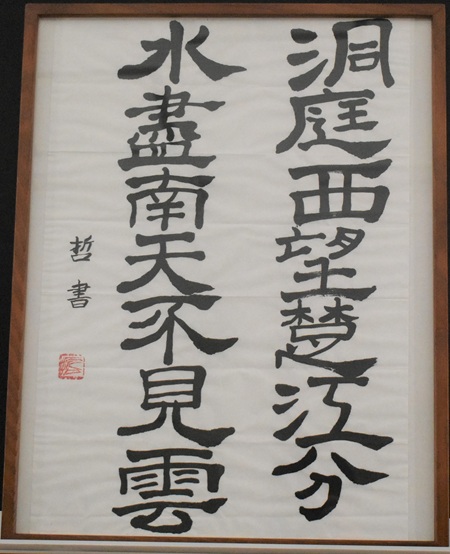 洞庭西望楚江分
水盡南天不見雲
哲書